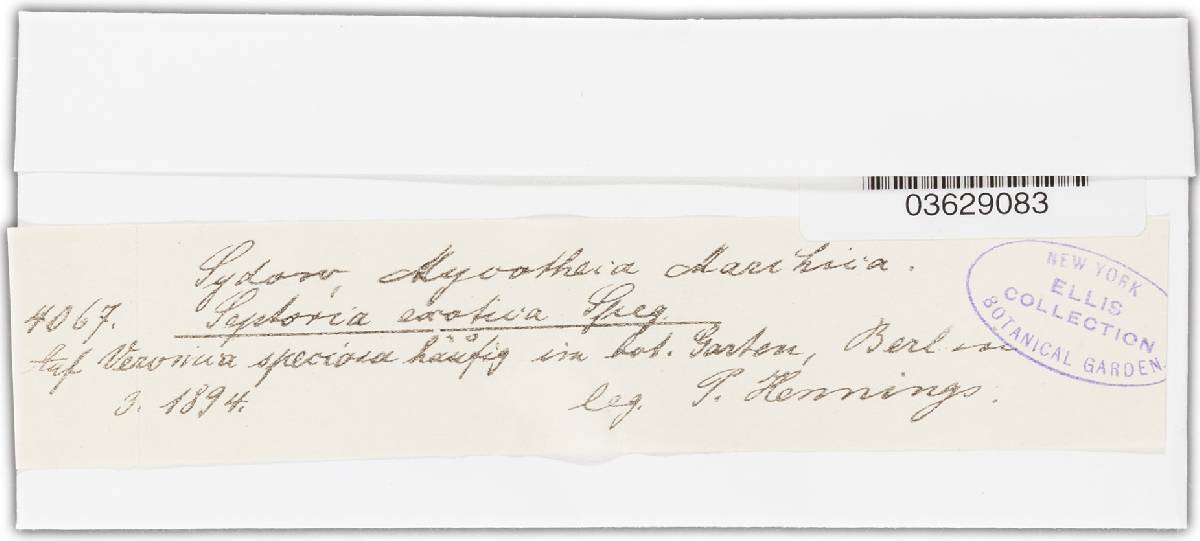 03629083
Sydow, Mycotheca Marchica.
4067. Septoria exotica Speg.
Auf Veronica speciosa häufig im bot. Garten, Berlin
3. 1894. leg. P. Hennings.
NEW YORK
ELLIS
COLLECTION
BOTANICAL GARDEN.